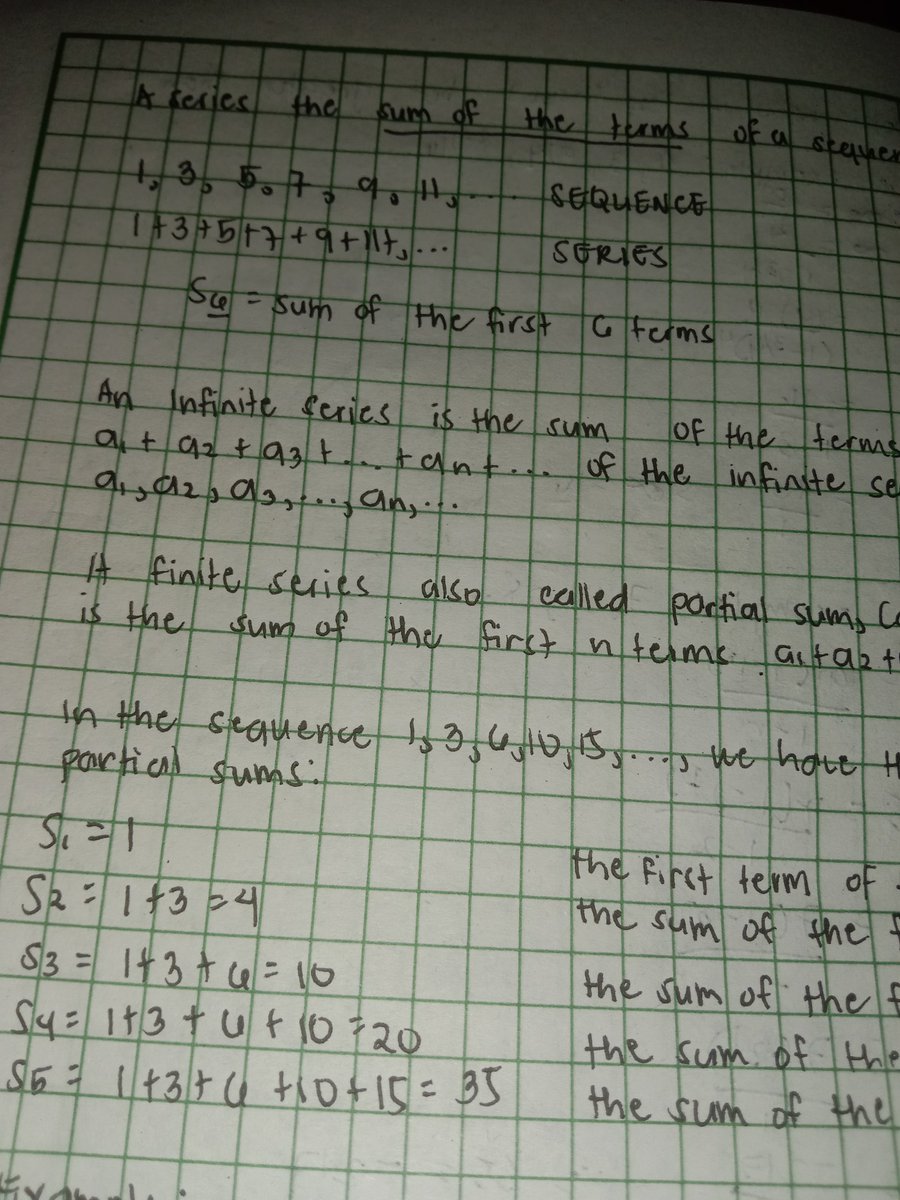 A series the sum of the terms of a sequen
1, 3, 5, 7, 9, 11, .... SEQUENCE
1+3+5+7+9+11+, ... SERIES
S6 = sum of the first 6 terms
An infinite series is the sum of the terms
a1 + a2 + a3 + ... + an + ... of the infinite se
a1, a2, a3, ..., an, ...
A finite series also called partial sum,
is the sum of the first n terms. a1+a2+
In the sequence 1, 3, 6, 10, 15, ..., we have
partical sums:
S1 = 1 the first term of
S2 = 1+3 = 4 the sum of the f
S3 = 1+3+6 = 10 the sum of the f
S4 = 1+3+6+10 = 20 the sum of the
S5 = 1+3+6+10+15 = 35 the sum of the